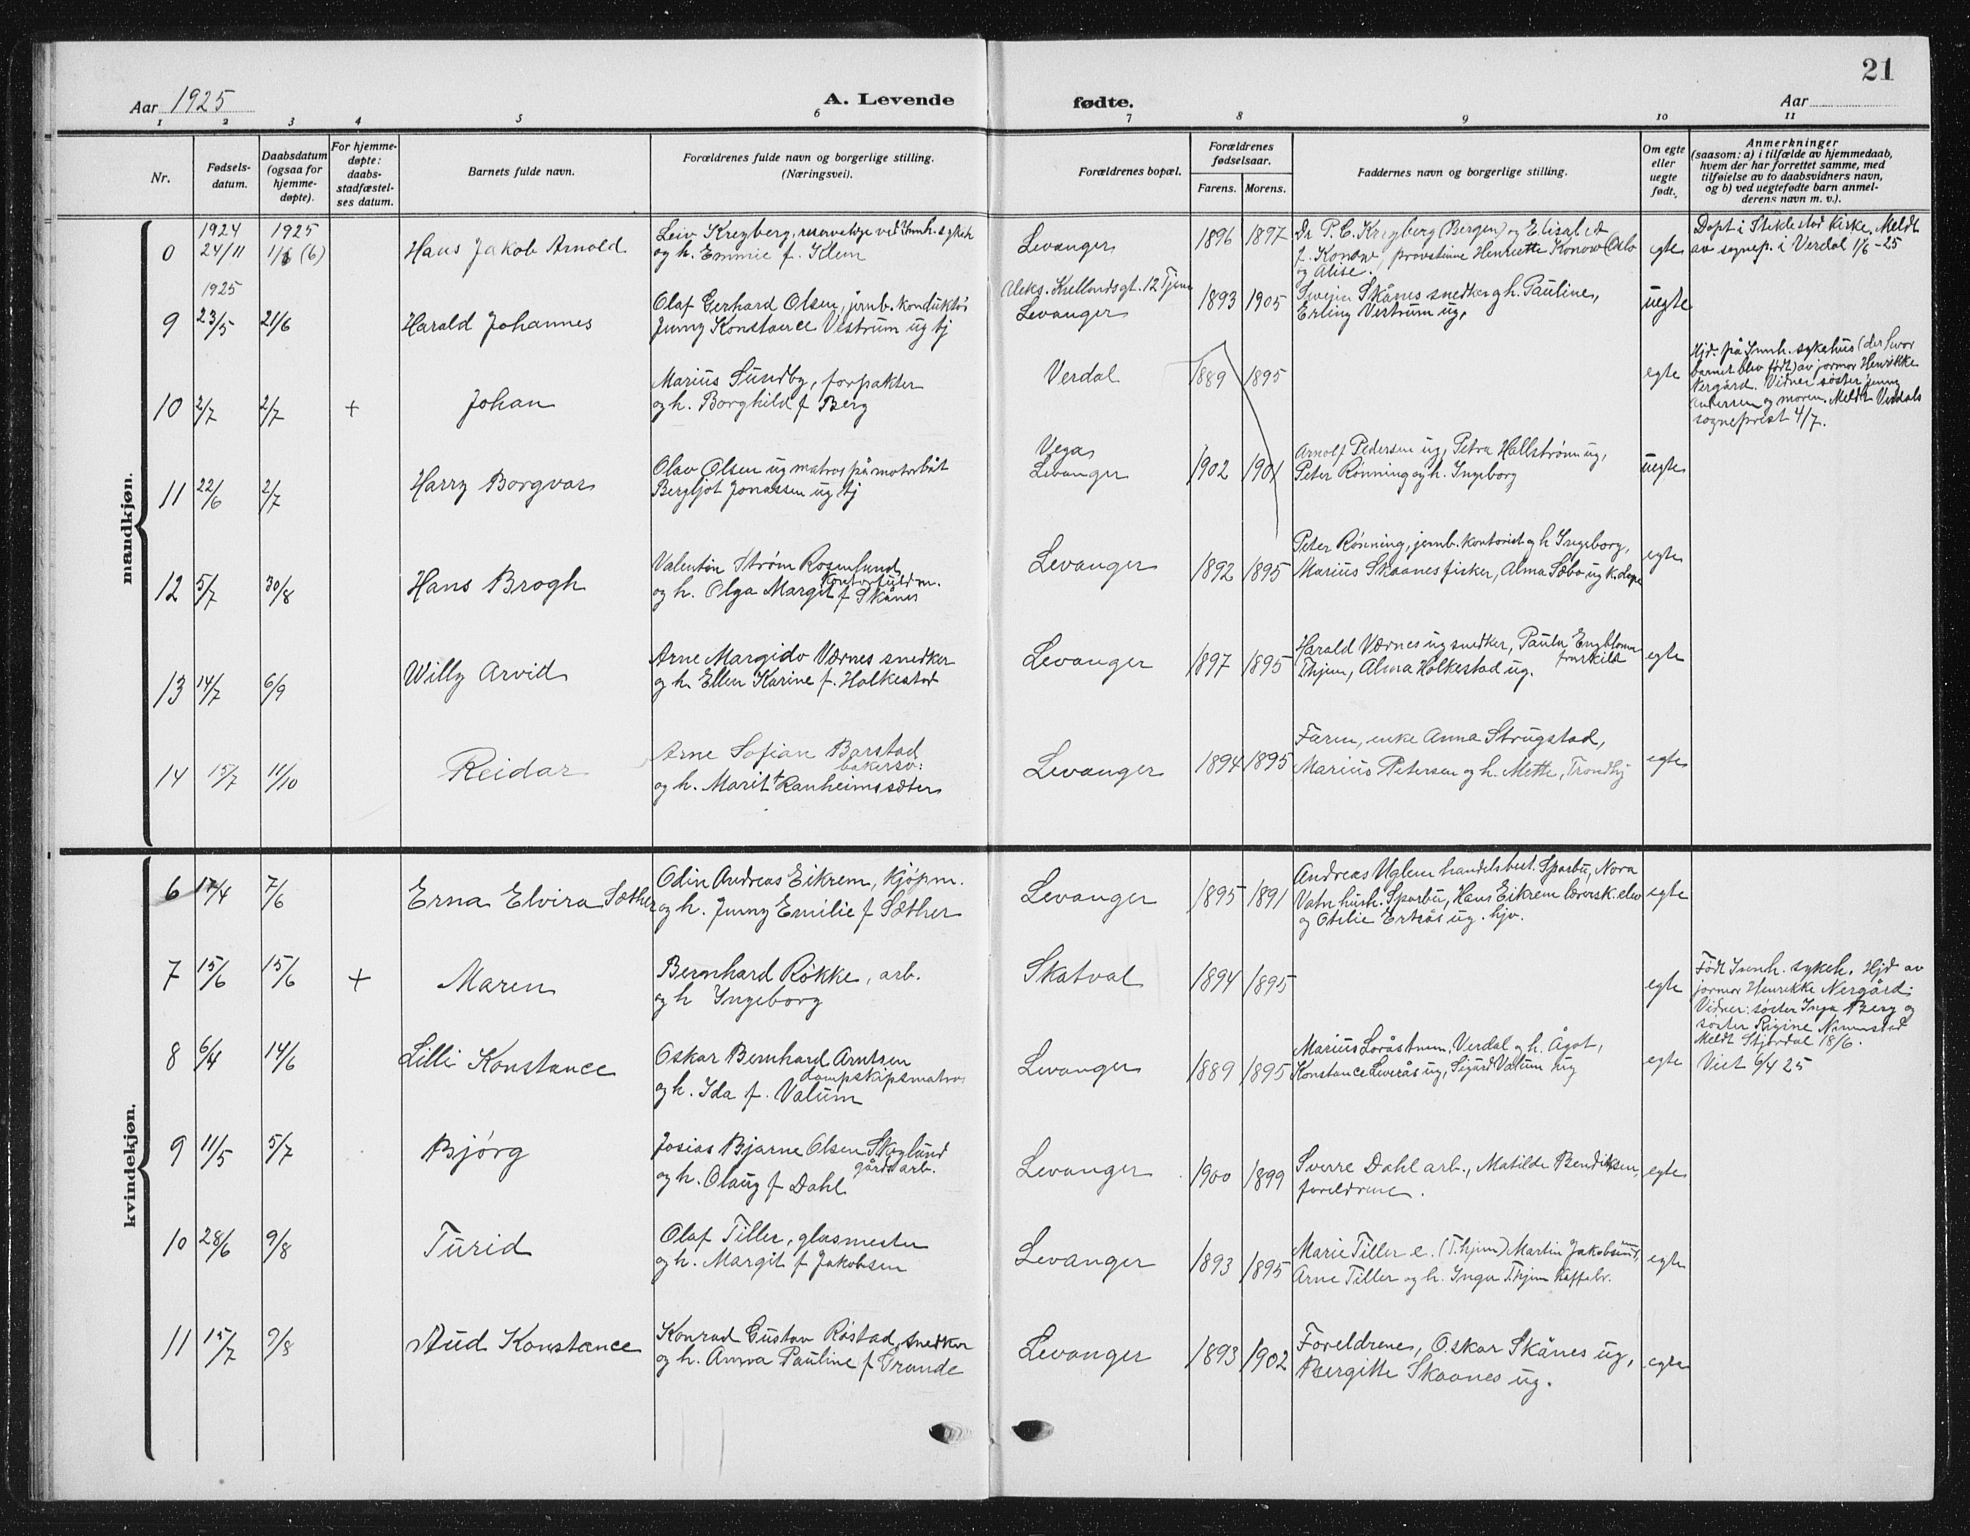 21
Aar 1925
A. Levende fødte.
Aar
1 2 3 4 5 6 7 8 9 10 11
Nr.
Fødsels-
datum.
Daabsdatum
(ogsaa for
hjemme-
døpte).
For hjemme-
døpte:
daabs-
stadfæstel-
ses datum.
Barnets fulde navn.
Forældrenes fulde navn og borgerlige stilling.
(Næringsvei).
Forældrenes bopæl.
Forældrenes
fødselsaar.
Farens. Morens.
Faddernes navn og borgerlige stilling.
Om egte
eller
uegte
født.
Anmerkninger
(saasom: a) i tilfælde av hjemmedaab,
hvem der har forrettet samme, med
tilføielse av to daabsvidners navn,
og b) ved uegtefødte barn anmel-
derens navn m. v.).
mandkjøn.
1924 1925
0 24/11 1/6 (6)
Hans Jakob Arnold
Leiv Kreyberg, reservelæge ved Innh. sykeh
og h. Emmie f. Klem
Levanger
1896 1897
Dr P. C. Kreyberg (Bergen) og Elisabet
f. Konow, provstinne Henriette Konow (Oslo
og Alise.
egte
Døpt i Stiklestad kirke. Meldt
av sognep. i Verdal 1/6-25
1925
9 23/5 21/6
Harald Johannes
Olaf Gerhard Olsen, jernb. konduktør
Jenny Konstance Vestrum ug tj
Aleks. Kiellandsgt. 12 Tjem
Levanger
1893 1905
Svejn Skånes snedker og h. Pauline,
Erling Vestrum ug.
uegte
10 2/7 2/7 +
Johan
Marius Sundby, forpakter
og h. Borghild f Berg
Verdal
1889 1895
egte
Hjd. på Innh. sykehus (der hvor
barnet blev født) av jormor Henrikke
Nergård. Vidner søster Jenny
Andersen og moren. Meldt Verdals
sogneprest 4/7.
11 22/6 2/7
Harry Borgvar
Olav Olsen ug matros på motorbåt
Bergljot Jonassen ug tj
Vega
Levanger
1902 1901
Arnolf Pedersen ug, Petra Hallstrøm ug,
Peter Rønning og h. Ingeborg
uegte
12 5/7 30/8
Hans Brogh
Valentin Strøm Rosenlund
kontorfuldm.
og h. Olga Margit f Skånes
Levanger
1892 1895
Peter Rønning, jernb. kontorist og h Ingeborg,
Marius Skaanes fisker, Alma Sæbo ug
egte
13 14/7 6/9
Willy Arvid
Arne Margido Værnes snedker
og h. Ellen Karine f. Holkestad
Levanger
1897 1895
Harald Værnes ug snedker, Paula Engblom
fraskild
Thjem, Alma Holkestad ug.
egte
14 15/7 11/10
Reidar
Arne Sofian Barstad
bakersv:
og h. Marit f Ranheimsæter
Levanger
1894 1895
Faren, enke Anna Strugstad,
Marius Petersen og h. Mette, Trondhj
egte
kvindekjøn.
6 17/4 7/6
Erna Elvira Sæther
Odin Andreas Eikrem, kjøpm.
og h. Jenny Emilie f Sæther
Levanger
1895 1891
Andreas Uglem handelsbest. Sparbu, Nora
Vatn hush. Sparbu, Hans Eikrem lærersk. elev
og Otilie Ertsås ug. hjv.
egte
7 15/6 15/6 +
Maren
Bernhard Røkke, arb.
og h Ingeborg
Skatval
1894 1895
egte
Født Innh. sykeh. Hjd av
jormor Henrikke Nergård.
Vidner: søster Inga Berg og
søster Rigine
Meldt Stjørdal 18/6.
8 6/4 14/6
Lilli Konstance
Oskar Bernhard Arntsen
dampskipsmatros
og h. Ida f. Valum
Levanger
1889 1895
Marius Loråstrøm, Verdal og h. Ågot,
Konstance Leverås ug, Sigurd Valum ug
egte
Viet 6/4 25
9 11/5 5/7
Bjørg
Josias Bjarne Olsen Skoglund
gårdsarb.
og h. Olaug f Dahl
Levanger
1900 1899
Sverre Dahl arb., Matilde Bendiksen,
foreldrene.
egte
10 28/6 9/8
Turid
Olaf Tiller, glasmester
og h. Margit f Jakobsen
Levanger
1893 1895
Marie Tiller e. (T.hjem) Martin Jakobsen um,
Arne Tiller og h. Inga Thjem Kaffebr.
egte
11 15/7 9/8
Aud Konstance
Konrad Gustav Røstad, snedker
og h. Anna Pauline f Grande
Levanger
1893 1902
Foreldrene, Oskar Skånes ug,
Bergitte Skaanes ug.
egte